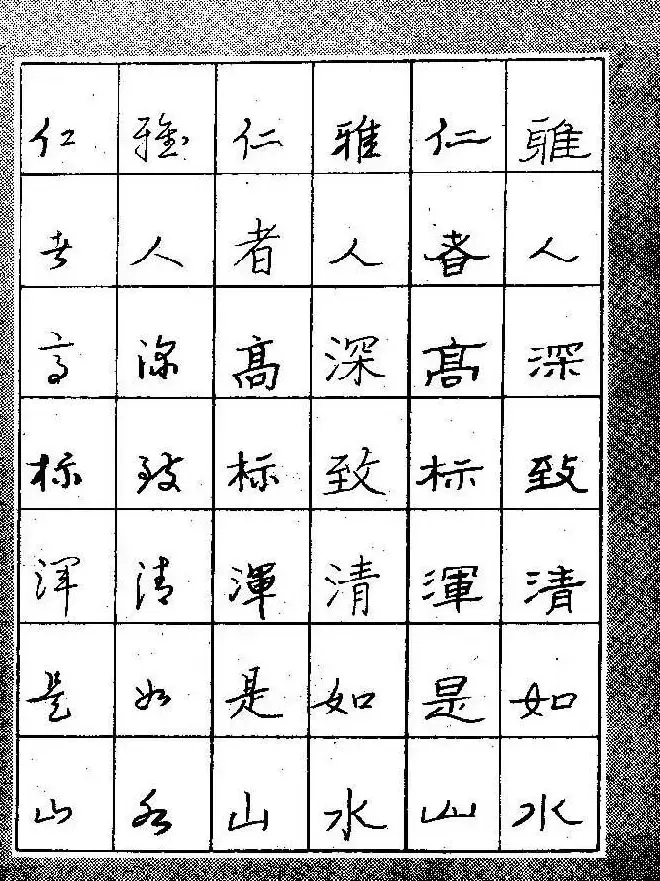 雅人深致清如水
仁者高标渾是山
雅人深致清如水
仁者高标渾是山
雅人深致清如水
仁者高标浑是山